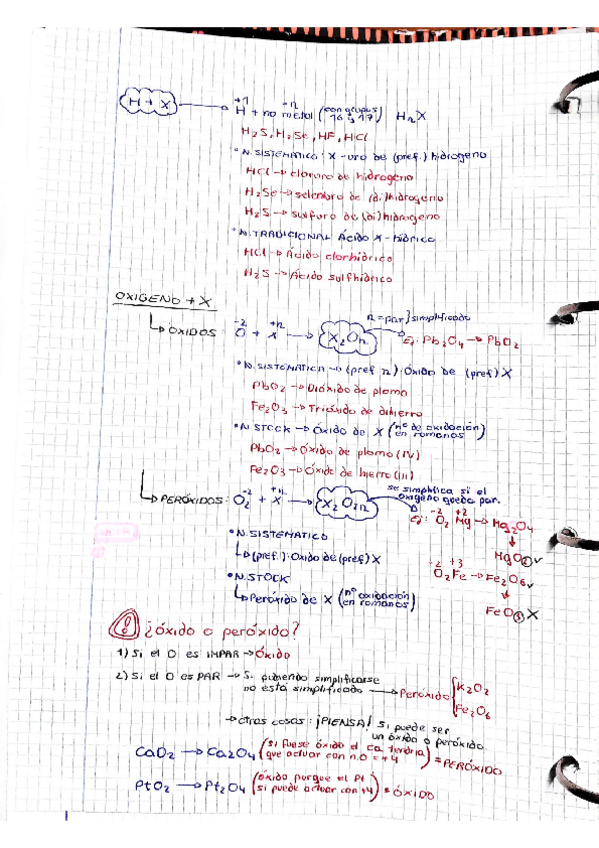 H + X → +1 H + +n no metal (con grupos 16 y 17) HnX
H₂S, H₂Se, HF, HCl
• N. SISTEMÁTICO: X-uro de (pref.) hidrógeno
HCl → cloruro de hidrógeno
H₂Se → selenuro de (di)hidrógeno
H₂S → sulfuro de (di)hidrógeno
• N. TRADICIONAL Ácido X-hídrico
HCl → Ácido clorhídrico
H₂S → Ácido sulfhídrico
OXIGENO + X
n = par } simplificado
ÓXIDOS: -2 O + +n X → X₂On Ej: Pb₂O₄ → PbO₂
• N. SISTEMÁTICA → (pref n): Óxido de (pref) X
PbO₂ → Dióxido de plomo
Fe₂O₃ → Trióxido de dihierro
• N STOCK → Óxido de X (nº de oxidación en romanos)
PbO₂ → Óxido de plomo (IV)
Fe₂O₃ → Óxido de hierro (III)
se simplifica si el oxígeno queda par.
PERÓXIDOS: O₂-2 + +n X → X₂O2n
Ej: -2 O₂ +2 Mg → Mg₂O₄
• N. SISTEMATICO
→ MgO② ✓
(pref.): Oxido de (pref) X
+2 +3 O₂Fe → Fe₂O₆ ✓
• N. STOCK
Peróxido de X (nº oxidación en romanos)
→ FeO③ X
! ¿óxido o peróxido?
1) Si el O es IMPAR → Óxido
2) Si el O es PAR → Si pudiendo simplificarse no está simplificado → Peróxido { K₂O₂ Fe₂O₆
→ otras cosas: ¡PIENSA! Si puede ser un óxido o peróxido
CaO₂ → Ca₂O₄ (si fuese óxido el Ca tendría que actuar con n.o = +4) = PERÓXIDO
PtO₂ → Pt₂O₄ (óxido porque el Pt si puede actuar con +4) = ÓXIDO